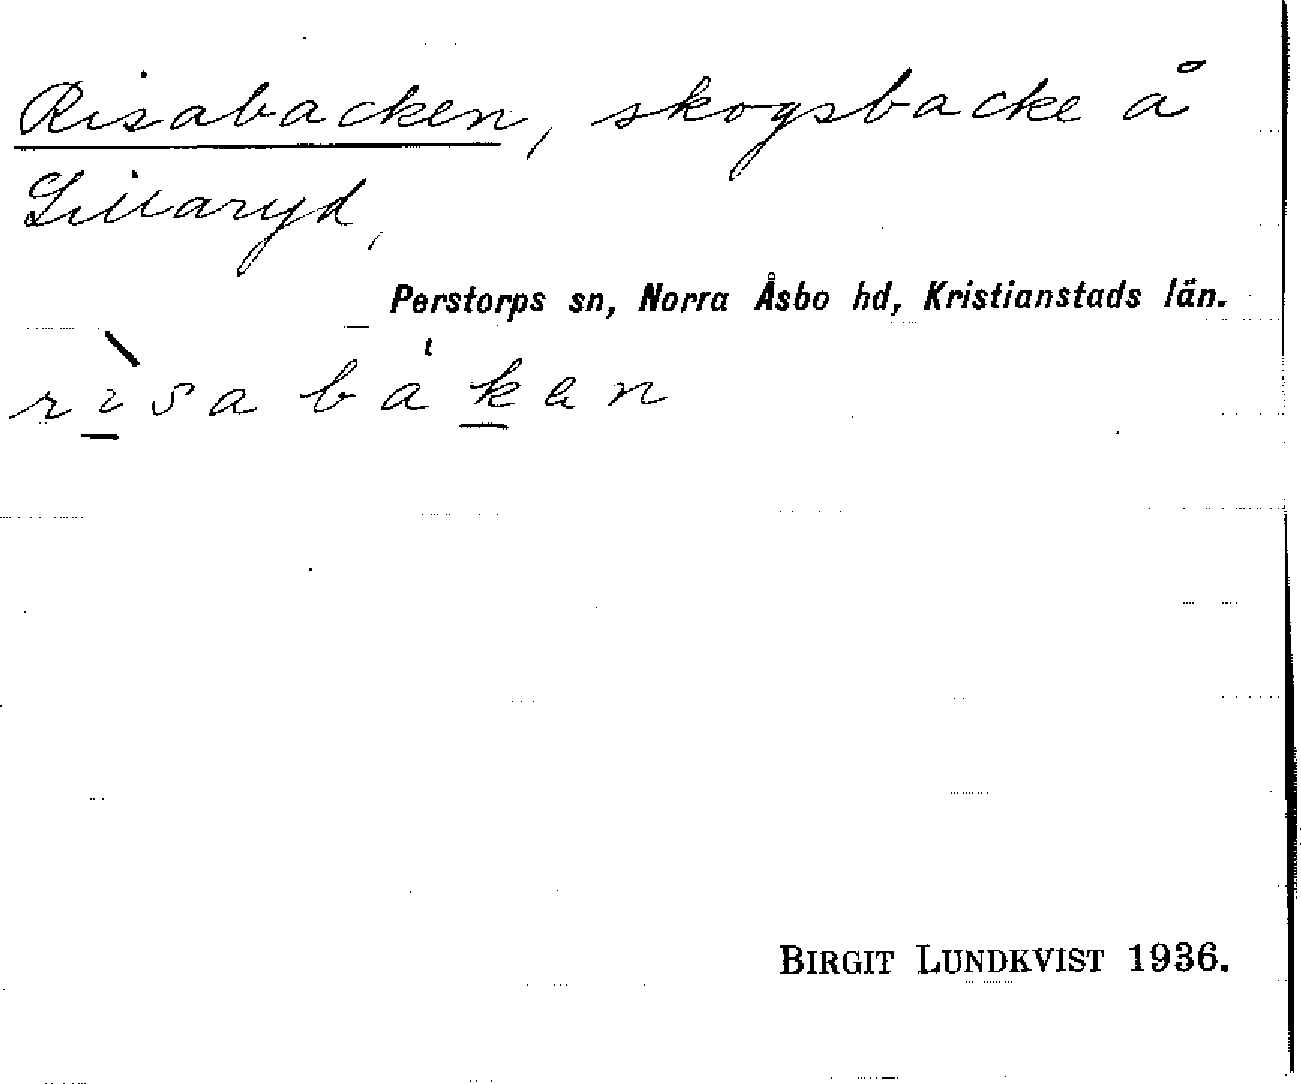 Risabacken, skogsbacke å
Lillaryd,
Perstorps sn, Norra Åsbo hd, Kristianstads län.
risabakan
BIRGIT LUNDKVIST 1936.